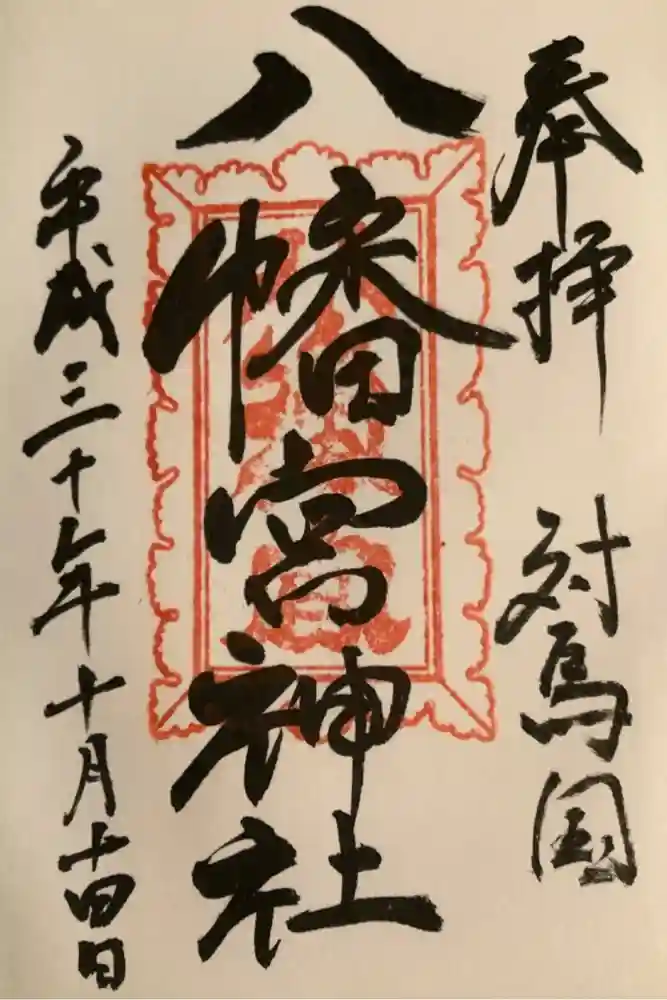 奉拝　対馬国
八幡宮神社
平成三十年十月十四日